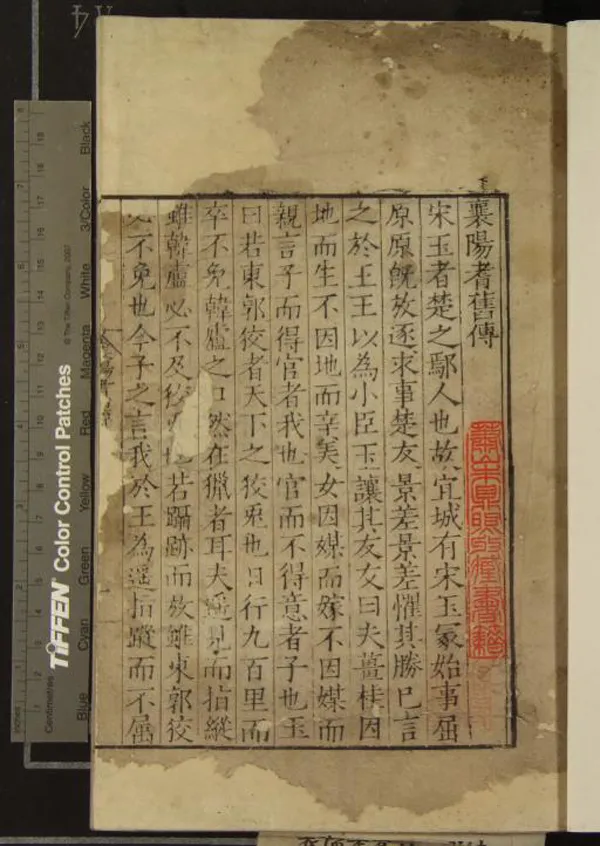 襄陽耆舊傳
宋玉者楚之鄢人也故宜城有宋玉冢始事屈
原原旣放逐求事楚友景差景差懼其勝已言
之於王王以為小臣玉讓其友友曰夫薑桂因
地而生不因地而辛美女因媒而嫁不因媒而
親言子而得官者我也官而不得意者子也玉
曰若東郭狡者天下之狡兎也日行九百里而
卒不免韓廬之口然在獵者耳夫遥見而指縱
雖韓廬必不及狡若躡跡而放雖東郭狡
不免也今子之言我於王為遥指蹤而不属
TIFFEN Color Control Patches
© The Tiffen Company, 2007
Blue
Cyan
Green
Yellow
Red
Magenta
White
3/Color
Black
Inches
Centimetres